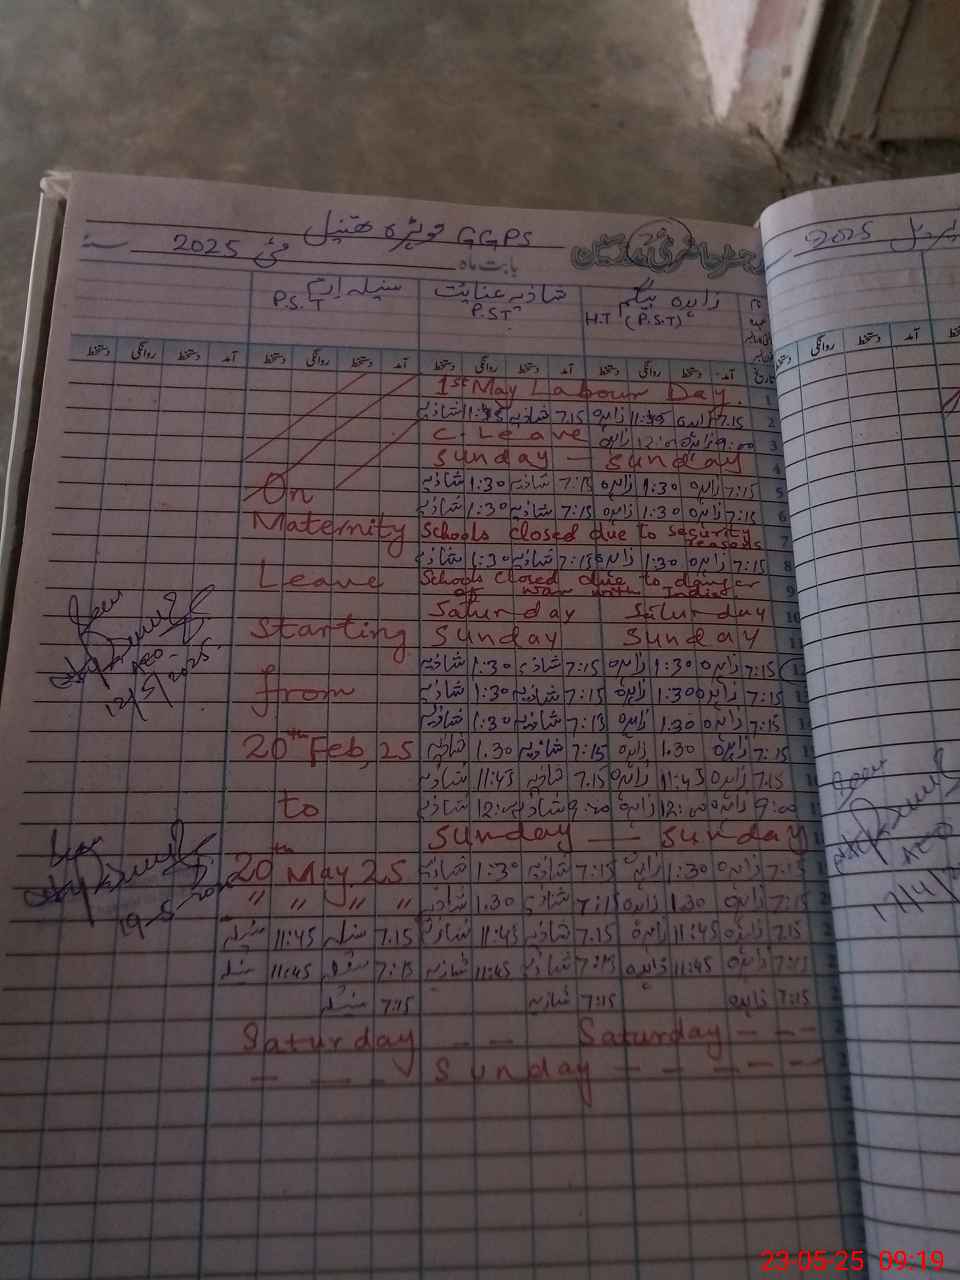 GGPS
مئی 2025
بابت ماہ
رجسٹر حاضری مدرسین
2025
زاہدہ بیگم
شازیہ عنایت
H.T (P.S.T)
P.ST
P.S.T
آمد دستخط روانگی دستخط آمد دستخط روانگی دستخط آمد دستخط روانگی دستخط آمد دستخط روانگی دستخط
1 1st May Labour Day
2 7.15 زاہدہ 11:45 زاہدہ 7.15 شازیہ 11:45 شازیہ
3 9:00 زاہدہ 12:00 زاہدہ C. Leave
4 Sunday – Sunday
5 7:15 زاہدہ 1:30 زاہدہ 7:15 شازیہ 1:30 شازیہ
On
6 7:15 زاہدہ 1:30 زاہدہ 7:15 شازیہ 1:30 شازیہ
Maternity
7 Schools closed due to security reasons
8 7:15 زاہدہ 1:30 زاہدہ 7:15 شازیہ 1:30 شازیہ
Leave
Schools closed due to danger of war with India
10 Saturday Saturday
Starting
11 Sunday Sunday
12 7:15 زاہدہ 1:30 زاہدہ 7:15 شازیہ 1:30 شازیہ
from
13 7:15 زاہدہ 1:30 زاہدہ 7:15 شازیہ 1:30 شازیہ
7:15 زاہدہ 1:30 زاہدہ 7:15 شازیہ 1:30 شازیہ
20th Feb, 25
7:15 زاہدہ 1.30 زاہدہ 7:15 شازیہ 1.30 شازیہ
7.15 زاہدہ 11:45 زاہدہ 7.15 شازیہ 11:45 شازیہ
to
9:00 زاہدہ 12:00 زاہدہ 9:00 شازیہ 12:00 شازیہ
Sunday – Sunday
20th May, 25
7:15 زاہدہ 1:30 زاہدہ 7:15 شازیہ 1:30 شازیہ
" " " "
7:15 زاہدہ 1.30 زاہدہ 7:15 شازیہ 1.30 شازیہ
7.15 زاہدہ 11:45 زاہدہ 7.15 شازیہ 11:45 شازیہ 7.15 11:45
7:15 زاہدہ 11:45 زاہدہ 7:15 شازیہ 11:45 شازیہ 7:15 11:45
7:15 زاہدہ 7:15 شازیہ 7:15
Saturday – – Saturday – – –
– – – Sunday – – – – –
Seen
AEO
12/5/2025.
Seen
19-5-20
Seen
AEO
17/4/
23-05-25 09:19